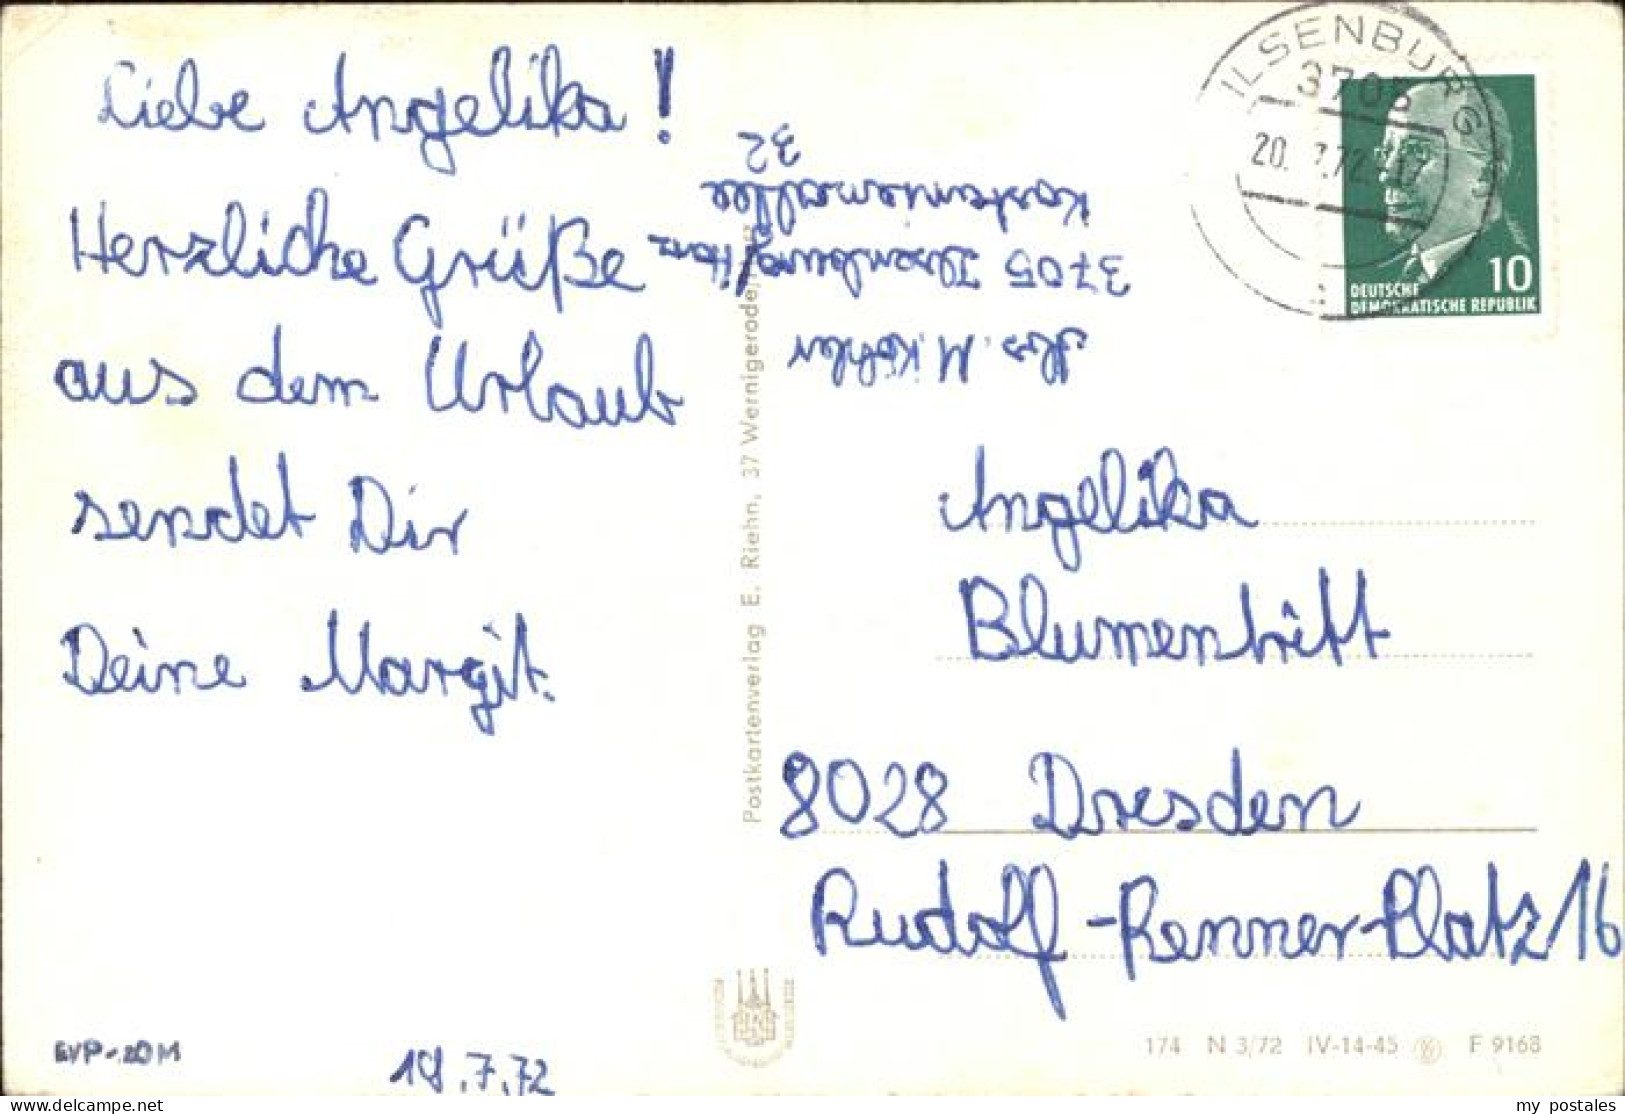 Liebe Angelika!
Herzliche Grüße
aus dem Urlaub
sendet Dir
Deine Margit.
EVP-.20M
18.7.72
Postkartenverlag E. Riehn, 37 Wernigerode/Harz
Abs. M. Köhler
3705 Ilsenburg/Harz
Kastanienallee
32
ILSENBURG
3705
20. 7.72
10
DEUTSCHE
DEMOKRATISCHE REPUBLIK
Angelika
Blumentritt
8028 Dresden
Rudolf-Renner-Platz 16
174 N 3/72 IV-14-45 F 9168
my postales